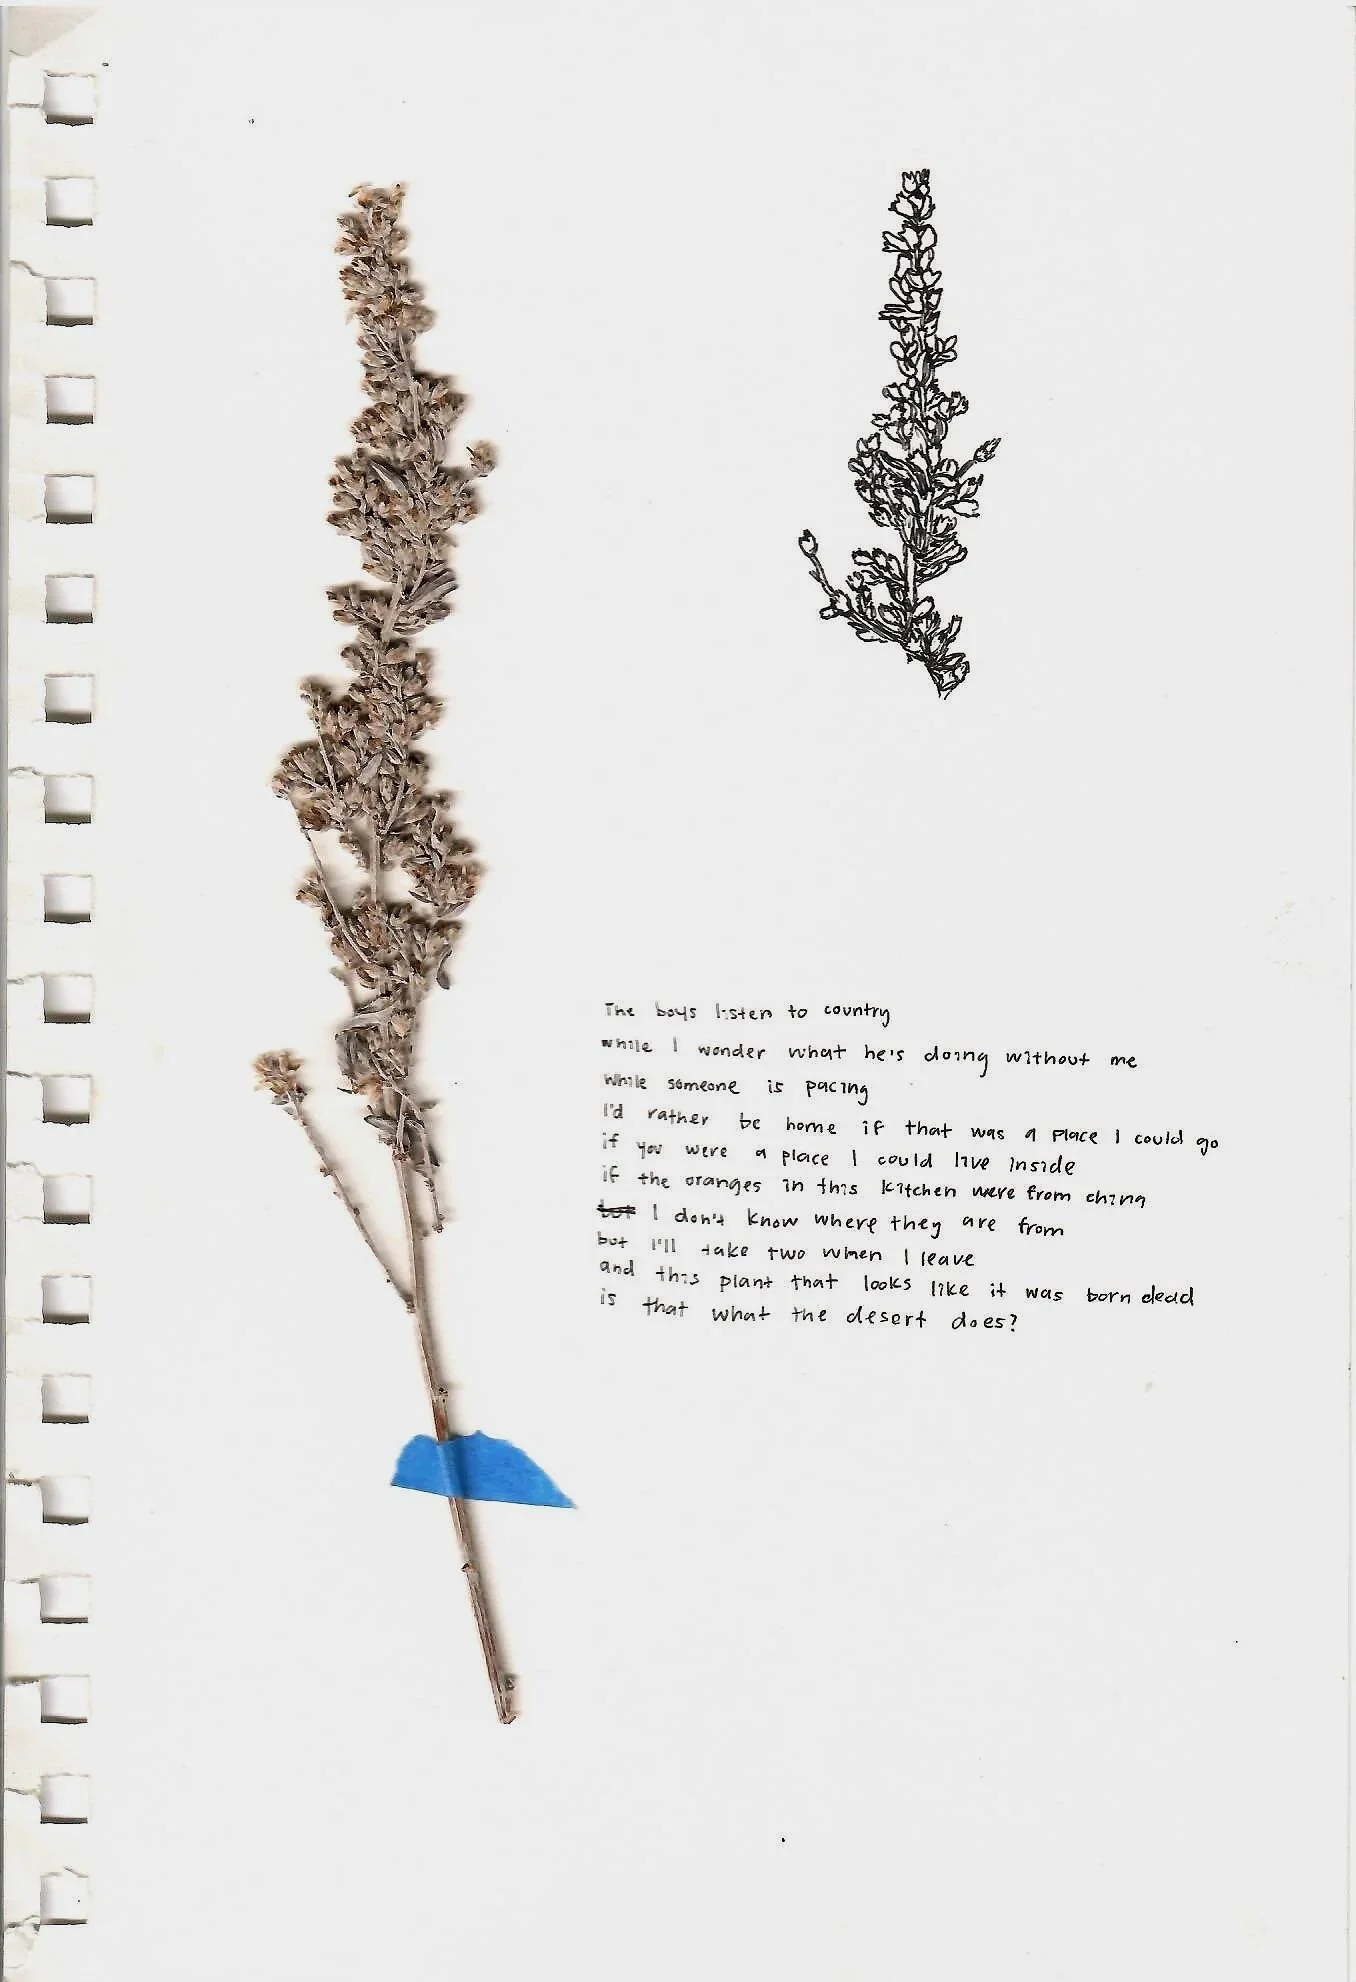 The boys listen to country
while I wonder what he's doing without me
while someone is pacing
I'd rather be home if that was a place I could go
if you were a place I could live inside
if the oranges in this kitchen were from china
but I don't know where they are from
but I'll take two when I leave
and this plant that looks like it was born dead
is that what the desert does?